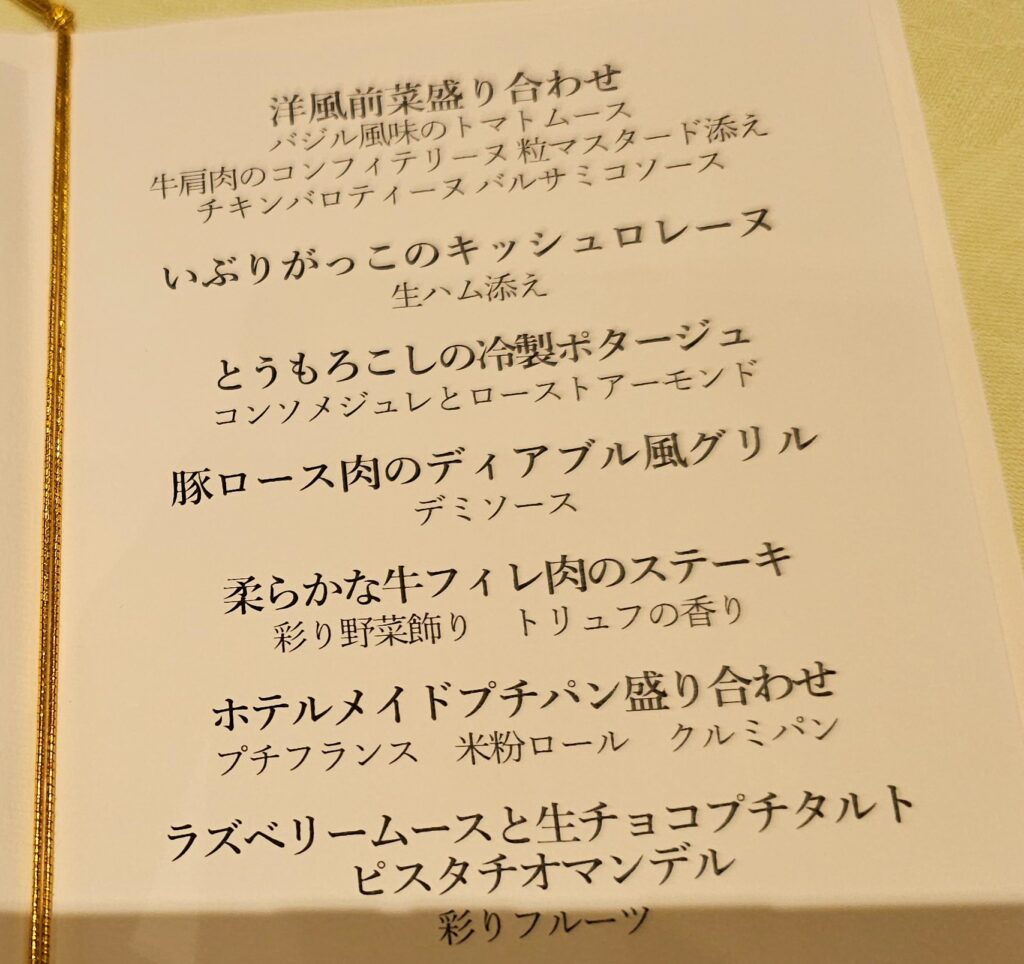 洋風前菜盛り合わせ
バジル風味のトマトムース
牛肩肉のコンフィテリーヌ 粒マスタード添え
チキンバロティーヌ バルサミコソース
いぶりがっこのキッシュロレーヌ
生ハム添え
とうもろこしの冷製ポタージュ
コンソメジュレとローストアーモンド
豚ロース肉のディアブル風グリル
デミソース
柔らかな牛フィレ肉のステーキ
彩り野菜飾り　トリュフの香り
ホテルメイドプチパン盛り合わせ
プチフランス　米粉ロール　クルミパン
ラズベリームースと生チョコプチタルト
ピスタチオマンデル
彩りフルーツ